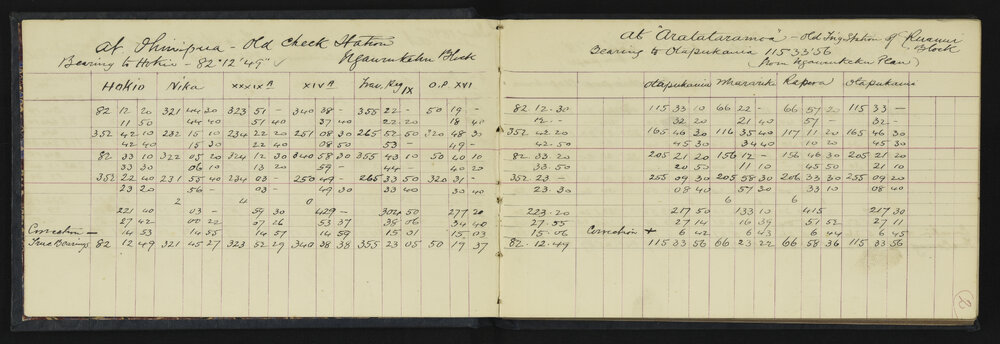 At Ohinipua - Old Check Station
Ngawurukehu Block
Bearing to Hokio - 82°12'49" ✓
Hokio Nika XXXIX A XIV A Trav. Peg IX O.P. XVI
82 12 20 321 44 30 323 51 - 340 38 - 355 22 - 50 19 - 82.12.30
11 50 44 40 51 40 37 40 22 20 18 40 12.-
352 42 10 232 15 10 234 22 20 251 08 30 265 52 50 320 48 30 352.42.20
42 40 15 30 22 40 08 50 53 - 49 - 42.50
82 33 10 322 05 20 324 12 30 340 58 30 355 43 10 50 40 10 82.33.20
33 30 06 10 13 20 59 - 44 - 40 20 33.50
352 22 40 231 55 40 234 03 - 250 49 - 265 33 50 320 31 - 352.23 -
23 20 56 - 03 - 49 30 33 40 30 40 23.30
2 4 0
221 40 03 - 59 30 429 - 304 50 277 20 223.20
27 42 00 22 07 26 53 37 38 06 34 40 27.55
Correction - 14 53 14 55 14 57 14 59 15 01 15 03 15.06
True Bearings 82 12 49 321 45 27 323 52 29 340 38 38 355 23 05 50 19 37 82.12.49
At "Aratataramoa" - Old Trig Station of Ruanui Block
Bearing to Otapukawa 115°33'56
(from Ngawurukehu Plan)
Otapukawa Maraurk Rapera Otapukawa
115 33 10 66 22 - 66 57 20 115 33 -
32 20 21 40 57 - 32 -
165 46 30 116 35 40 117 11 20 165 46 30
45 30 34 40 10 20 45 30
205 21 20 156 12 - 156 46 30 205 21 20
20 50 11 10 45 50 21 10
255 09 30 205 58 30 206 33 30 255 09 20
08 40 57 30 33 10 08 40
6 6
217 50 133 10 415 217 30
27 14 16 39 51 52 27 11
Correction + 6 42 6 43 6 44 6 45
115 33 56 66 23 22 66 58 36 115 33 56